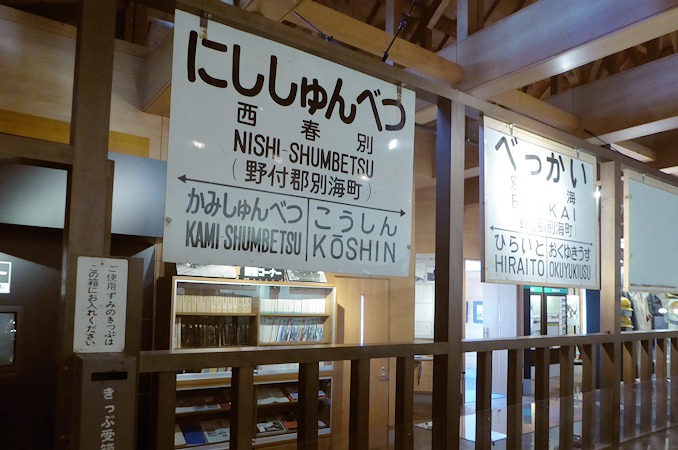 にししゅんべつ
西春別
NISHI-SHUMBETSU
(野付郡別海町)
かみしゅんべつ
KAMI SHUMBETSU
こうしん
KŌSHIN
べっかい
別海
KAI
(野付郡別海町)
ひらいと
HIRAITO
おくゆきうす
OKUYUKIUSU
コーナー
ご使用ずみのきっぷは
この箱にお入れください。
きっぷ受箱